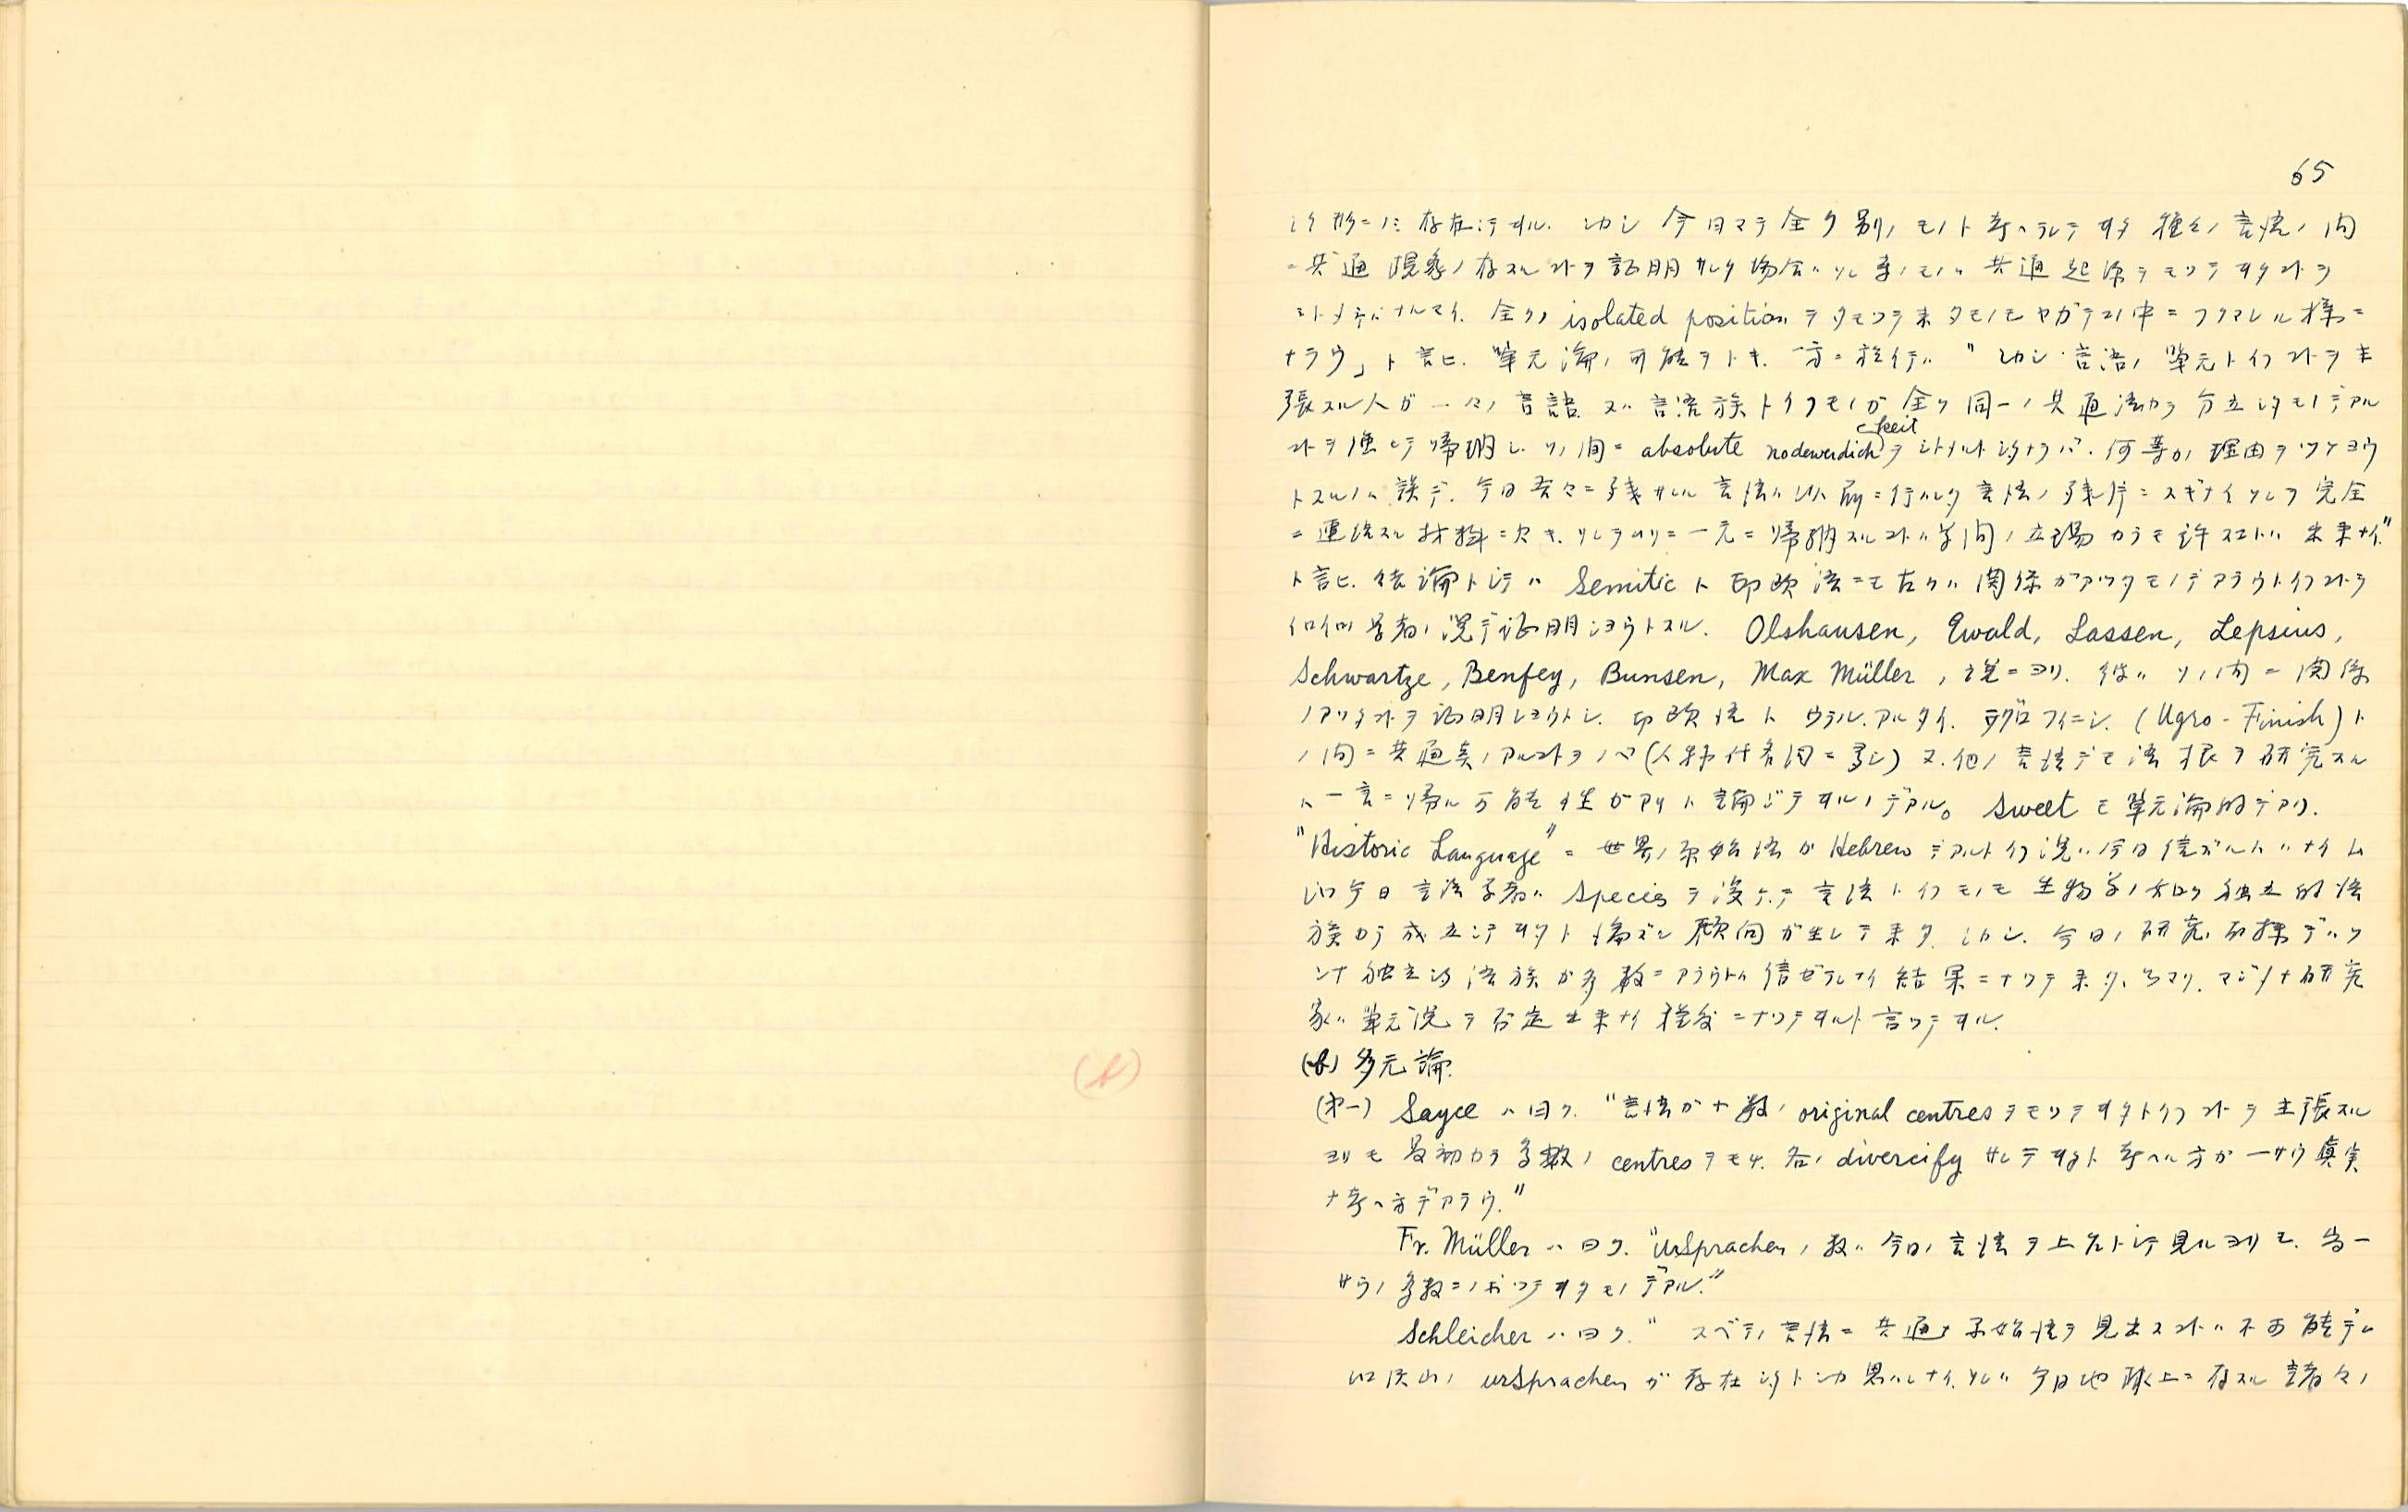 65
形ニノミ存在シテヰル. シカシ 今日マデ全ク別ノモノト考ヘラレテヰタ 種々ノ言語ノ間
ニ共通現象ノ存スルコトヲ証明サレタ場合ハソレ等ノモノハ 共通起源ヲモツテヰタコトヲ
ミトメネバナルマイ. 全クノ isolated position ヲタモツテ来タモノモヤガテコノ中ニフクマレル様ニ
ナラウ」ト言ヒ. 單元論ノ可能ヲトキ. 一方ニ於イテハ " シカシ 言語ノ單元トイフコトヲ主
張スル人ガ 一々ノ言語 又ハ言語族トイフモノガ 全ク同一ノ共通語カラ分立シタモノデアル
コトヲ強ヒテ帰納シ. ソノ間ニ absolute nodewendichkeit ヲミトメルトシタナラバ. 何等カノ理由ヲツケヨウ
トスルノハ誤デ. 今日吾々ニ残サレル言語ハ以前ニ行ハレタ言語ノ残片ニスギナイソレヲ完全
ニ連絡スル材料ニ欠キ. ソレヲムリニ一元ニ帰納スルコトハ学問ノ立場カラモ許スコトハ出来ナイ"
ト言ヒ. 結論トシテハ Semitic ト印欧語ニモ古クハ関係ガアツタモノデアラウトイフコトヲ
イロイロノ学者ノ説デ証明シヨウトスル. Olshausen, Ewald, Lassen, Lepsius,
Schwartze, Benfey, Bunsen, Max Müller ノ説ニヨリ. 彼ハ ソノ間ニ関係
ノアツタコトヲ証明シヨウトシ. 印欧語ト ウラル.アルタイ. ヲグロフィニシ. (Ugro-Finish) ト
ノ間ニ共通点ノアルコトヲノベ (人称代名詞ニ多シ) 又. 他ノ言語デモ語根ヲ研究スル
ト一言ニ帰ル可能性ガアリト論ジテヰルノデアル。 Sweet モ單元論的デアリ.
"Historic Language" ニ 世界ノ原始語ガ Hebrew デアルトイフ説ハ今日信ズルトハナイ
今日言語学者ハ Species ヲ設ケテ 言語トイフモノモ生物学ノ如ク独立的語
族カラ成立シテヰタト論ズル傾向ガ生レテ来タ. シカシ. 今日ノ研究ノ結果デハソ
ンナ独立的語族ガ多数ニアラウトハ信ゼラレナイ結果ニナツテ来タ. ツマリ. マジメナ研究
家ハ單元説ヲ否定出来ナイ程度ニナツテヰルト言ツテヰル.
(b) 多元論.
(b)
(オ一) Sayce ハ曰ク. "言語ガ十数ノ original centres ヲモツテヰタトイフコトヲ主張スル
ヨリモ最初カラ多数ノ centres ヲモチ. 各ノ divercify サレテヰタト考ヘル方ガ一サウ真実
ナ考ヘ方デアラウ."
Fr. Müller ハ曰ク. "ursprachen ノ数ハ今日ノ言語ヲ上カラトシテ見ルヨリモ. 尚一
サウノ多数ニノボツテヰタモノデアル."
Schleicher ハ曰ク. " スベテノ言語ニ共通ナ原始語ヲ見出スコトハ不可能デ
沢山ノ ursprachen ガ存在シタトシカ思ハレナイ. ソレハ今日地球上ニ存スル諸々ノ